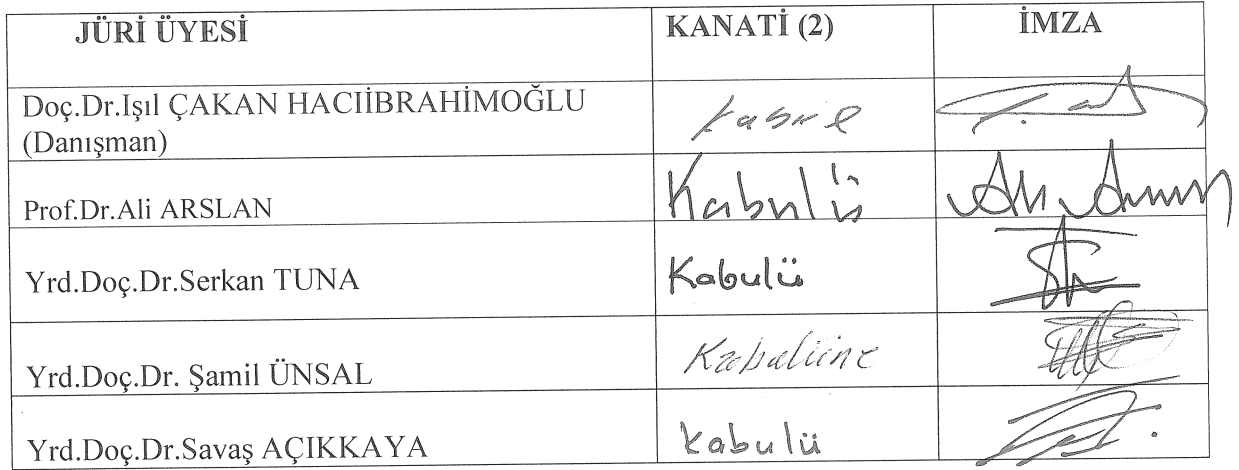 JÜRİ ÜYESİ KANATİ (2) İMZA
Doç.Dr.Işıl ÇAKAN HACIİBRAHİMOĞLU
(Danışman)
Prof.Dr.Ali ARSLAN Kabulü
Yrd.Doç.Dr.Serkan TUNA Kabulü
Yrd.Doç.Dr. Şamil ÜNSAL Kabulüne
Yrd.Doç.Dr.Savaş AÇIKKAYA kabulü